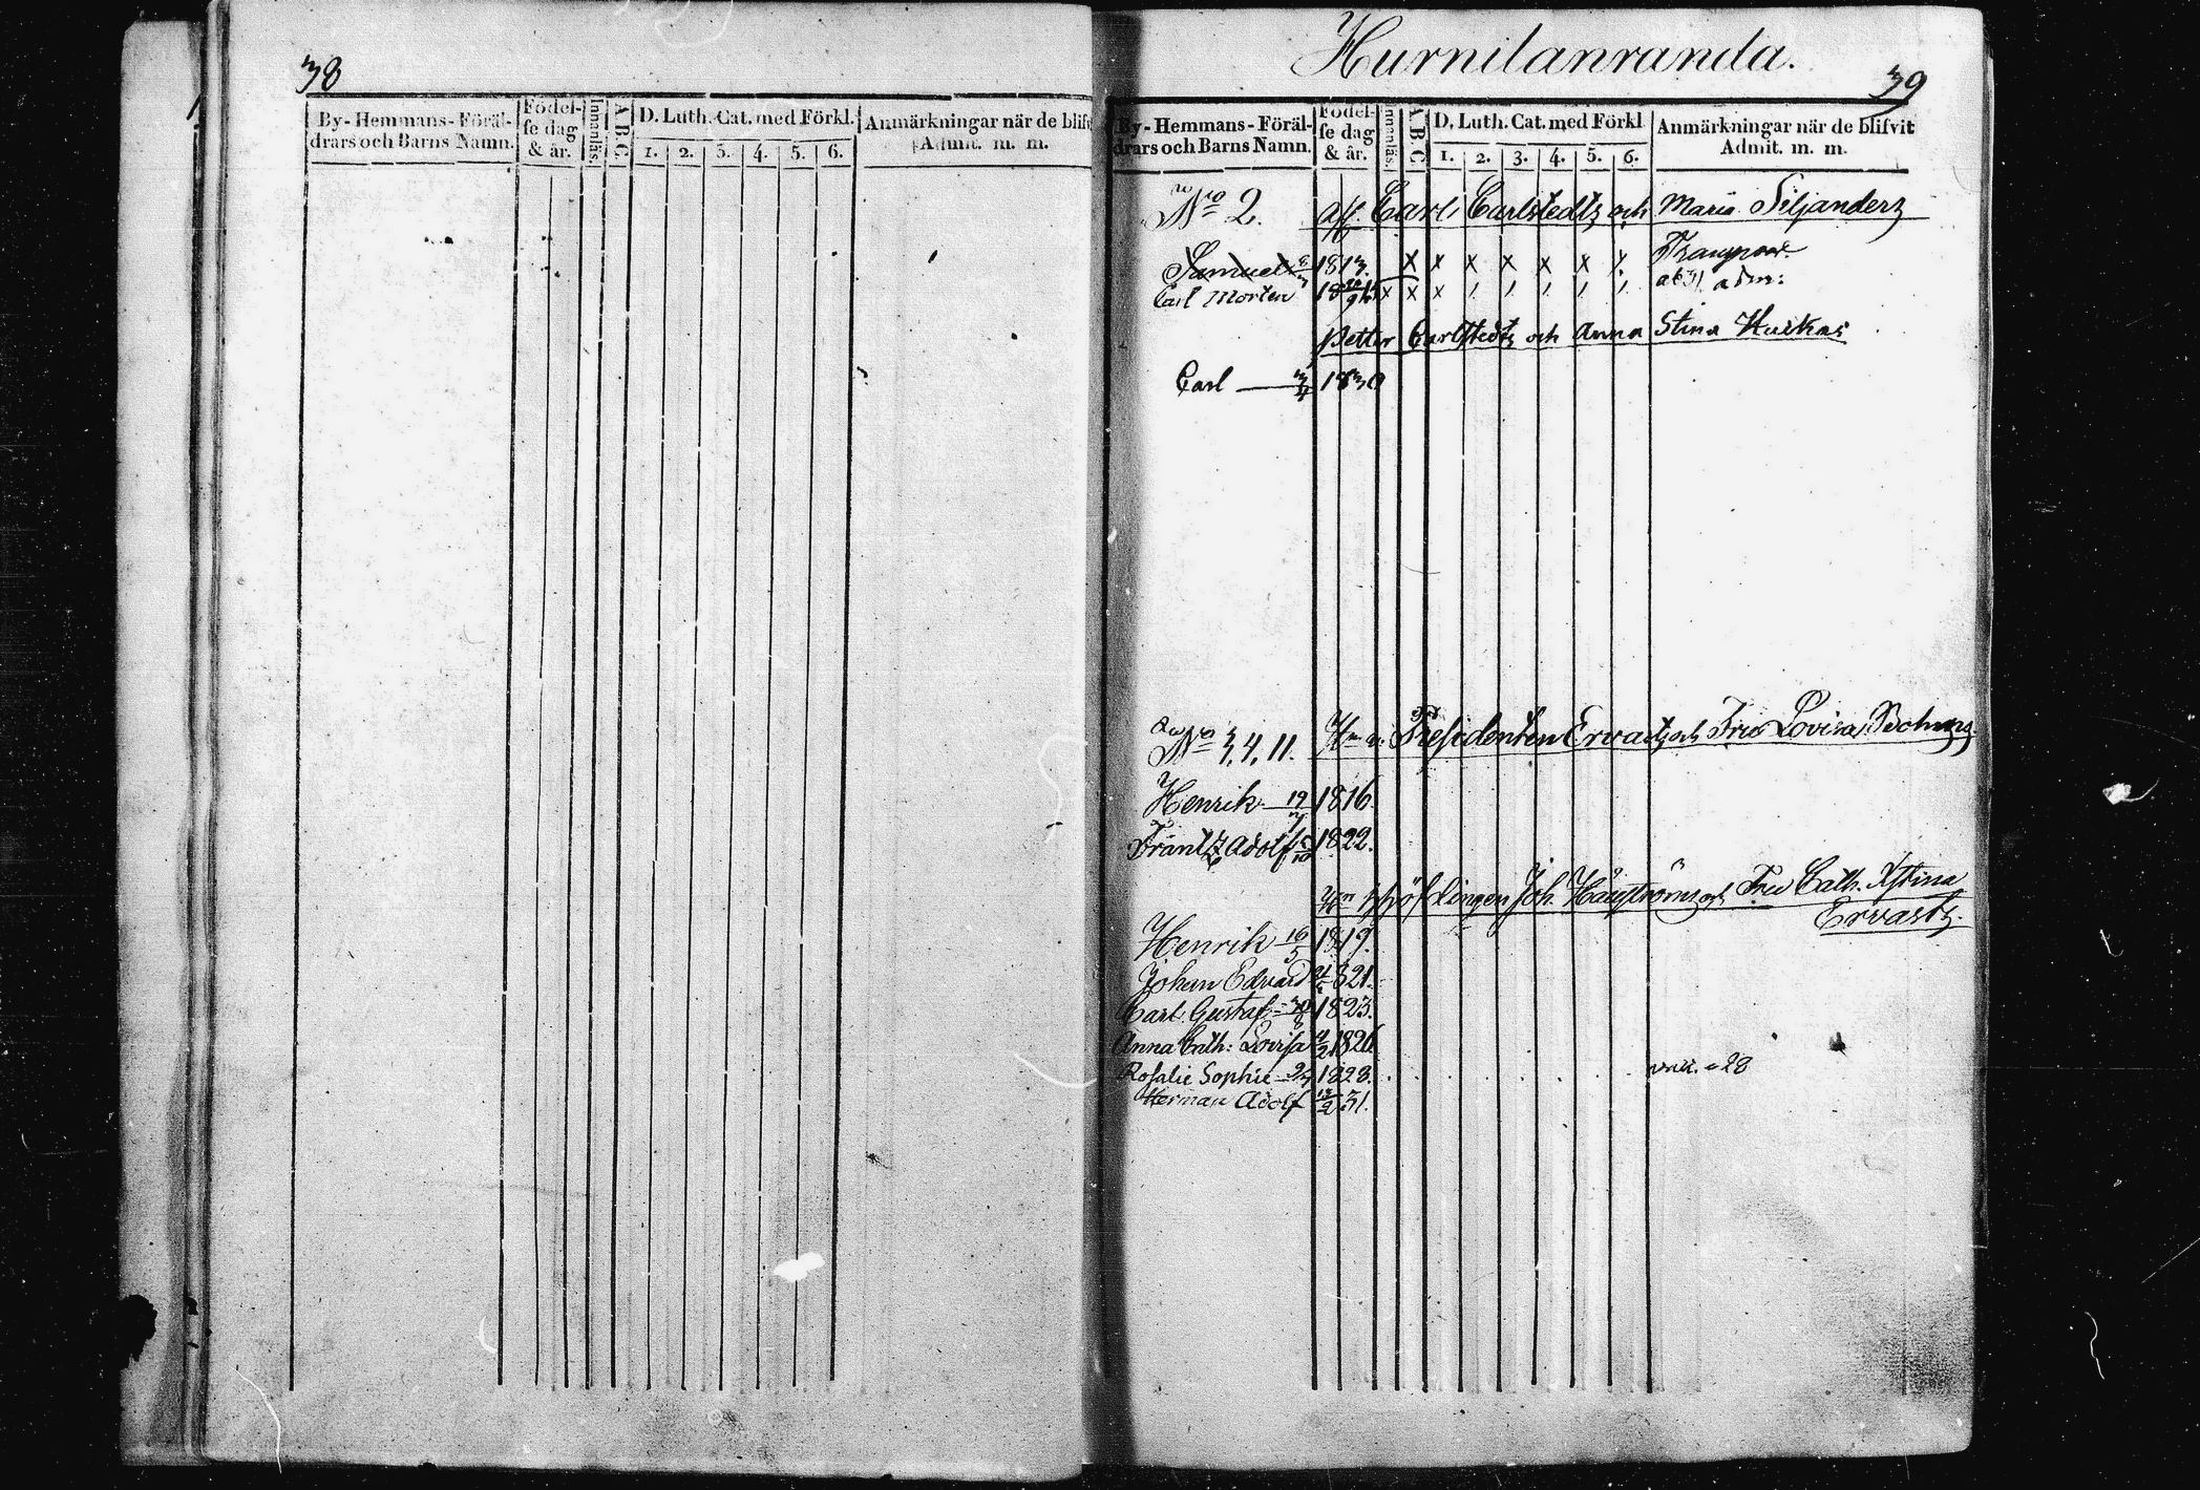 38
By-Hemmans-Föräl-
drars och Barns Namn.
Födel-
se dag
& år.
Innanläs.
A B C
D. Luth. Cat. med Förkl.
1. 2. 3. 4. 5. 6.
Anmärkningar när de blifv
Admit. m. m.
Hurnilanranda.
39
By-Hemmans-Föräl-
drars och Barns Namn.
Födel-
se dag
& år.
Innanläs.
A B C
D. Luth. Cat. med Förkl
1. 2. 3. 4. 5. 6.
Anmärkningar när de blifvit
Admit. m. m.
No 2. Carl Carlstedts och Maria Siljanders
Samuel 1813. x x x x x x x
Carl Morten x x x adm:
Petter Carlstedts och Anna Stina Kurkas
Carl 3/4 1830
No 3, 4, 11. Presidenten Ervasts och Fru Lovisa
Henrik 19/7 1816.
Frantz Adolf 5/10 1822.
Joh. Häggströms och Fru Cath. Xstina
Ervasts.
Henrik 16/5 1819.
Johan Edvard 1821.
Carl Gustaf 1823.
Anna Cath: Lovisa 1826
Rosalie Sophie 1828. 28
Herman Adolf 13/2 31.